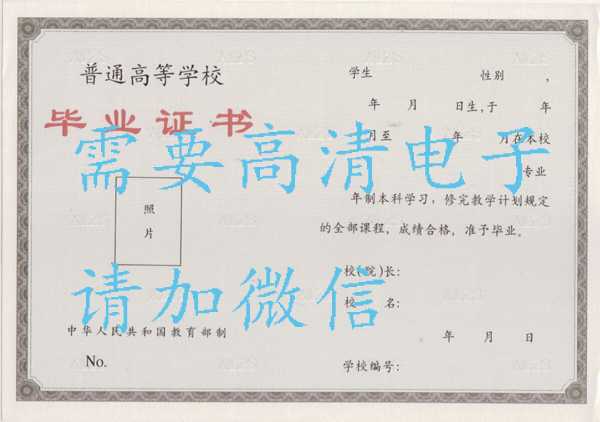 普通高等学校
毕业证书
照
片
中华人民共和国教育部制
No.
学生 性别 ,
年 月 日生,于 年
月至 年 月在本校
专业
年制本科学习，修完教学计划规定
的全部课程，成绩合格，准予毕业。
校(院)长:
校 名:
年 月 日
学校编号:
需要高清电子
请加微信